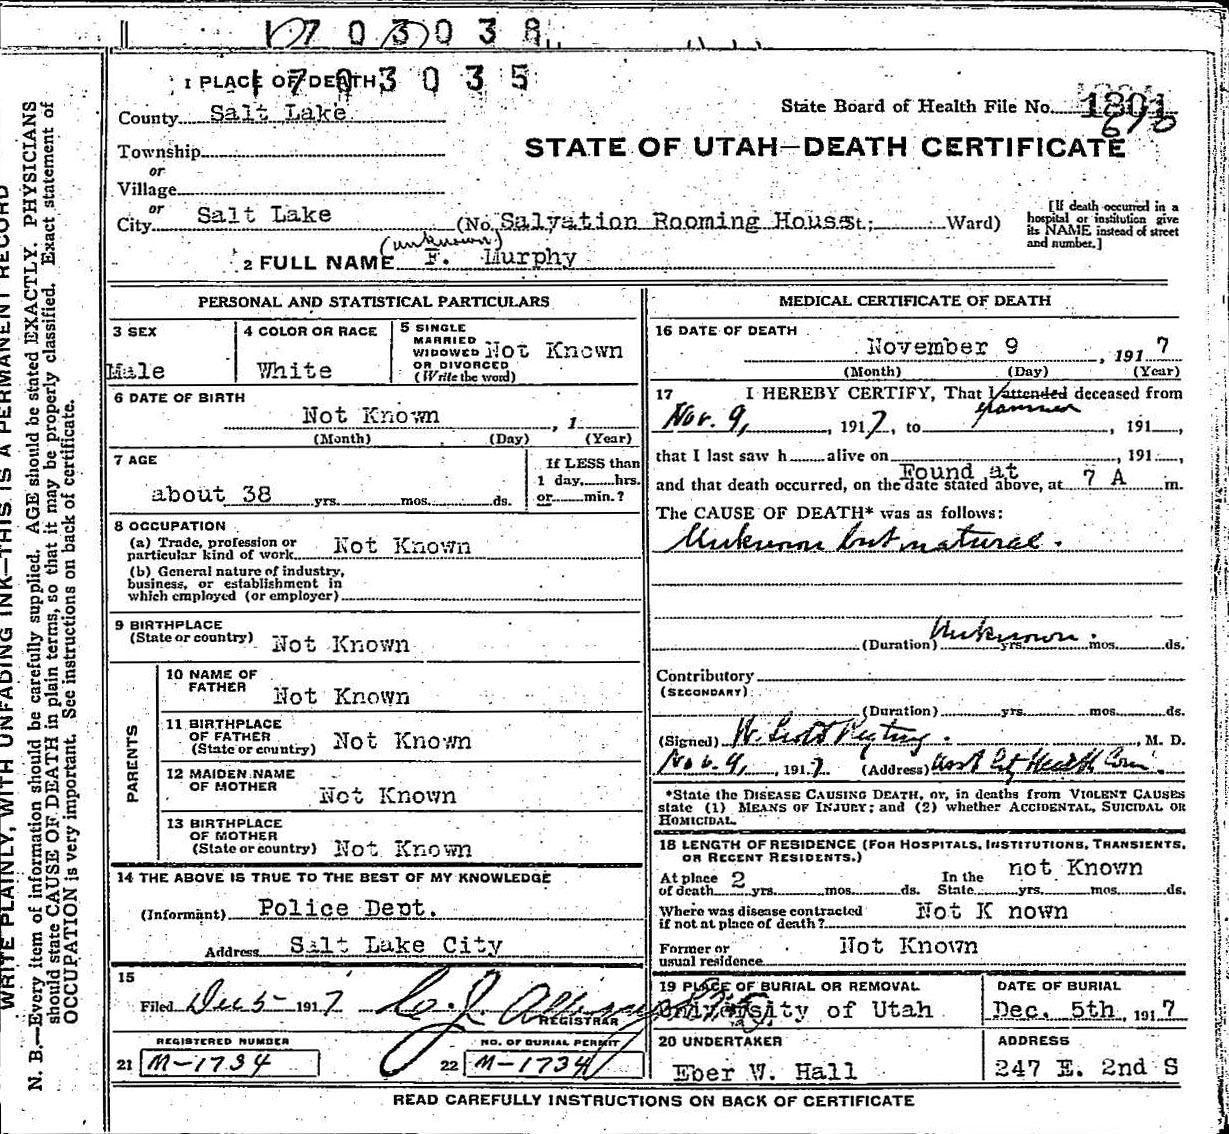 703038
1 PLACE OF DEATH
703035
County Salt Lake
State Board of Health File No. 1801
670
STATE OF UTAH—DEATH CERTIFICATE
Township
or
Village
or
City Salt Lake (No. Salvation Rooming House St; Ward)
[If death occurred in a
hospital or institution give
its NAME instead of street
and number.]
(unknown)
2 FULL NAME F. Murphy
PERSONAL AND STATISTICAL PARTICULARS
3 SEX
Male
4 COLOR OR RACE
White
5 SINGLE
MARRIED
WIDOWED
OR DIVORCED
(Write the word)
Not Known
6 DATE OF BIRTH
Not Known , 1
(Month) (Day) (Year)
7 AGE
about 38 yrs. mos. ds.
If LESS than
1 day, hrs.
or min.?
8 OCCUPATION
(a) Trade, profession or
particular kind of work Not Known
(b) General nature of industry,
business, or establishment in
which employed (or employer)
9 BIRTHPLACE
(State or country) Not Known
PARENTS
10 NAME OF
FATHER Not Known
11 BIRTHPLACE
OF FATHER
(State or country) Not Known
12 MAIDEN NAME
OF MOTHER Not Known
13 BIRTHPLACE
OF MOTHER
(State or country) Not Known
14 THE ABOVE IS TRUE TO THE BEST OF MY KNOWLEDGE
(Informant) Police Dept.
Address Salt Lake City
15
Filed Dec 5 1917
REGISTRAR
REGISTERED NUMBER
21 M-1734
NO. OF BURIAL PERMIT
22 M-1734
MEDICAL CERTIFICATE OF DEATH
16 DATE OF DEATH
November 9 , 1917
(Month) (Day) (Year)
17 I HEREBY CERTIFY, That I attended deceased from
examined
Nov. 9, , 1917, to , 191 ,
that I last saw h alive on , 191 ,
Found at
and that death occurred, on the date stated above, at 7 A m.
The CAUSE OF DEATH* was as follows:
Unknown but natural.
Unknown.
(Duration) yrs. mos. ds.
Contributory
(SECONDARY)
(Duration) yrs. mos. ds.
(Signed) W. Scott , M. D.
Nov. 9, , 1917. (Address) Asst City Health Com.
*State the DISEASE CAUSING DEATH, or, in deaths from VIOLENT CAUSES
state (1) MEANS OF INJURY; and (2) whether ACCIDENTAL, SUICIDAL OR
HOMICIDAL.
18 LENGTH OF RESIDENCE (FOR HOSPITALS, INSTITUTIONS, TRANSIENTS,
OR RECENT RESIDENTS.)
not Known
At place In the
of death 2 yrs. mos. ds. State yrs. mos. ds.
Where was disease contracted
if not at place of death? Not K nown
Former or
usual residence Not Known
19 PLACE OF BURIAL OR REMOVAL
University of Utah
DATE OF BURIAL
Dec. 5th, 1917
20 UNDERTAKER
Eber W. Hall
ADDRESS
247 E. 2nd S
READ CAREFULLY INSTRUCTIONS ON BACK OF CERTIFICATE
WRITE PLAINLY, WITH UNFADING INK—THIS IS A PERMANENT RECORD
N. B.—Every item of information should be carefully supplied. AGE should be stated EXACTLY. PHYSICIANS
should state CAUSE OF DEATH in plain terms, so that it may be properly classified. Exact statement of
OCCUPATION is very important. See instructions on back of certificate.